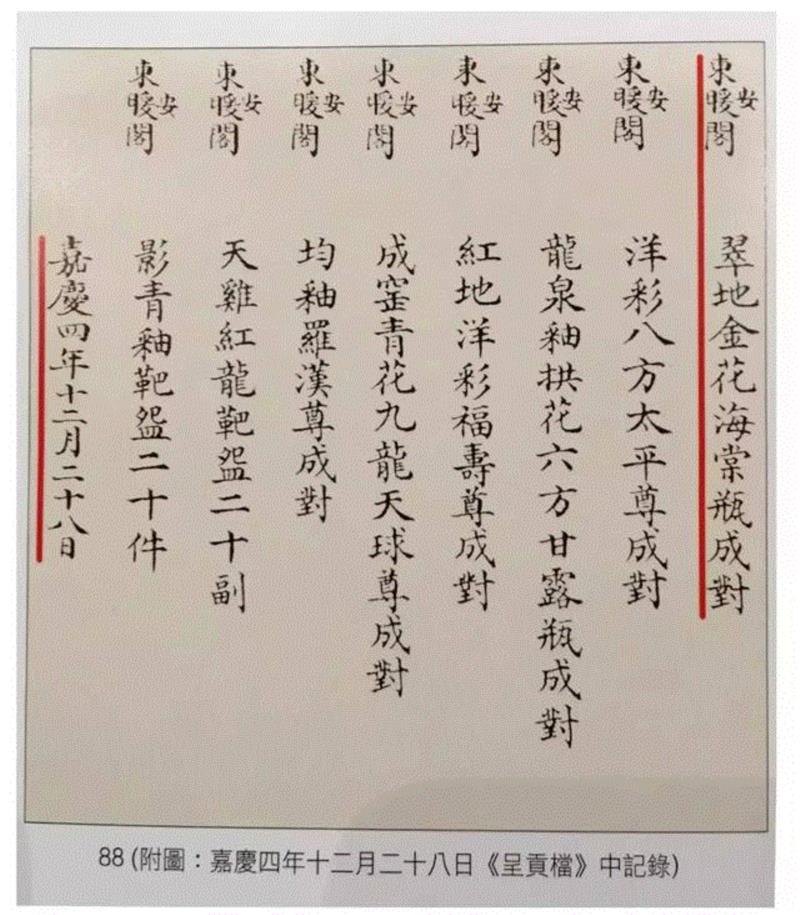 安東暖閣 翠地金花海棠瓶成對
安東暖閣 洋彩八方太平尊成對
安東暖閣 龍泉釉拱花六方甘露瓶成對
安東暖閣 紅地洋彩福壽尊成對
安東暖閣 成窑青花九龍天球尊成對
安東暖閣 均釉羅漢尊成對
安東暖閣 天雞紅龍靶盌二十副
安東暖閣 影青釉靶盌二十件
嘉慶四年十二月二十八日
88 (附圖：嘉慶四年十二月二十八日《呈貢檔》中記錄)